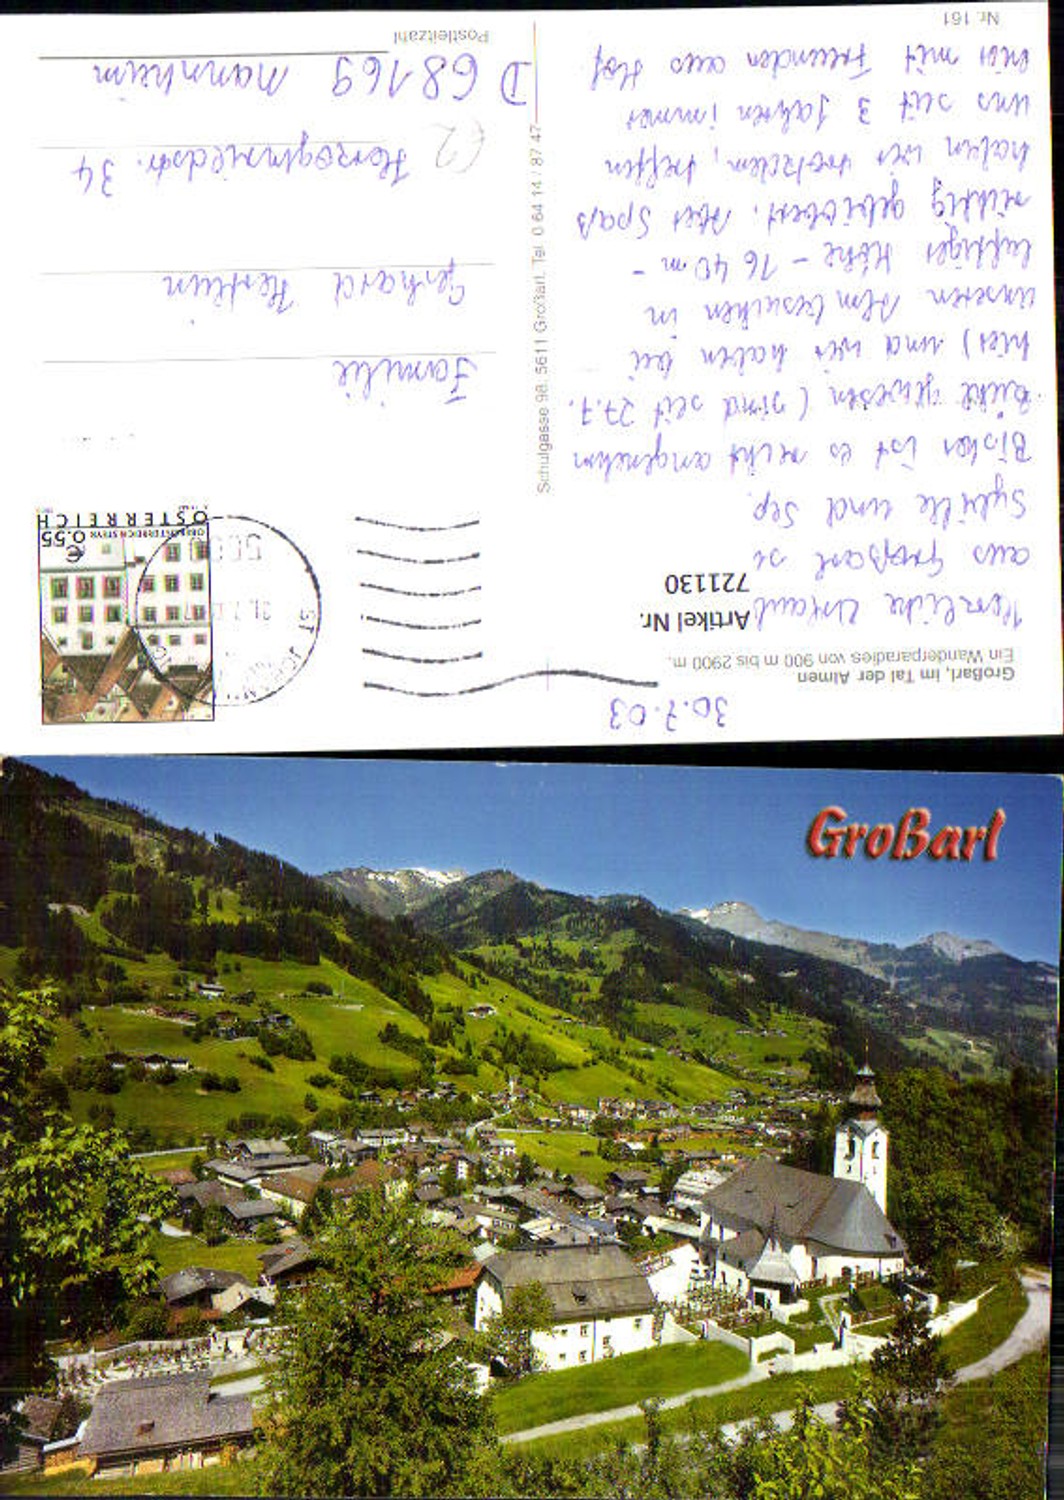 30.7.03
Großarl, im Tal der Almen
Ein Wanderparadies von 900 m bis 2900 m.
Artikel Nr.
721130
Herzliche Urlaub
aus Großarl
Sybille und Sep.
Bisher ist es recht angenehm
gewesen (sind seit 27.7.
hier) und wir haben bei
unseren Almbesuchen in
luftiger Höhe - 1640 m -
richtig gebibbert. Aber Spaß
haben wir trotzdem, treffen
uns seit 3 Jahren immer
hier mit Freunden aus Hof.
Nr. 161
Schulgasse 98, 5611 Großarl, Tel. 0 64 14 / 87 47
€ 0.55
OBERÖSTERREICH STEYR
ÖSTERREICH
Familie
Gerhard
Herzogenriedstr. 34
D 68169 Mannheim
Postleitzahl
€2
Großarl